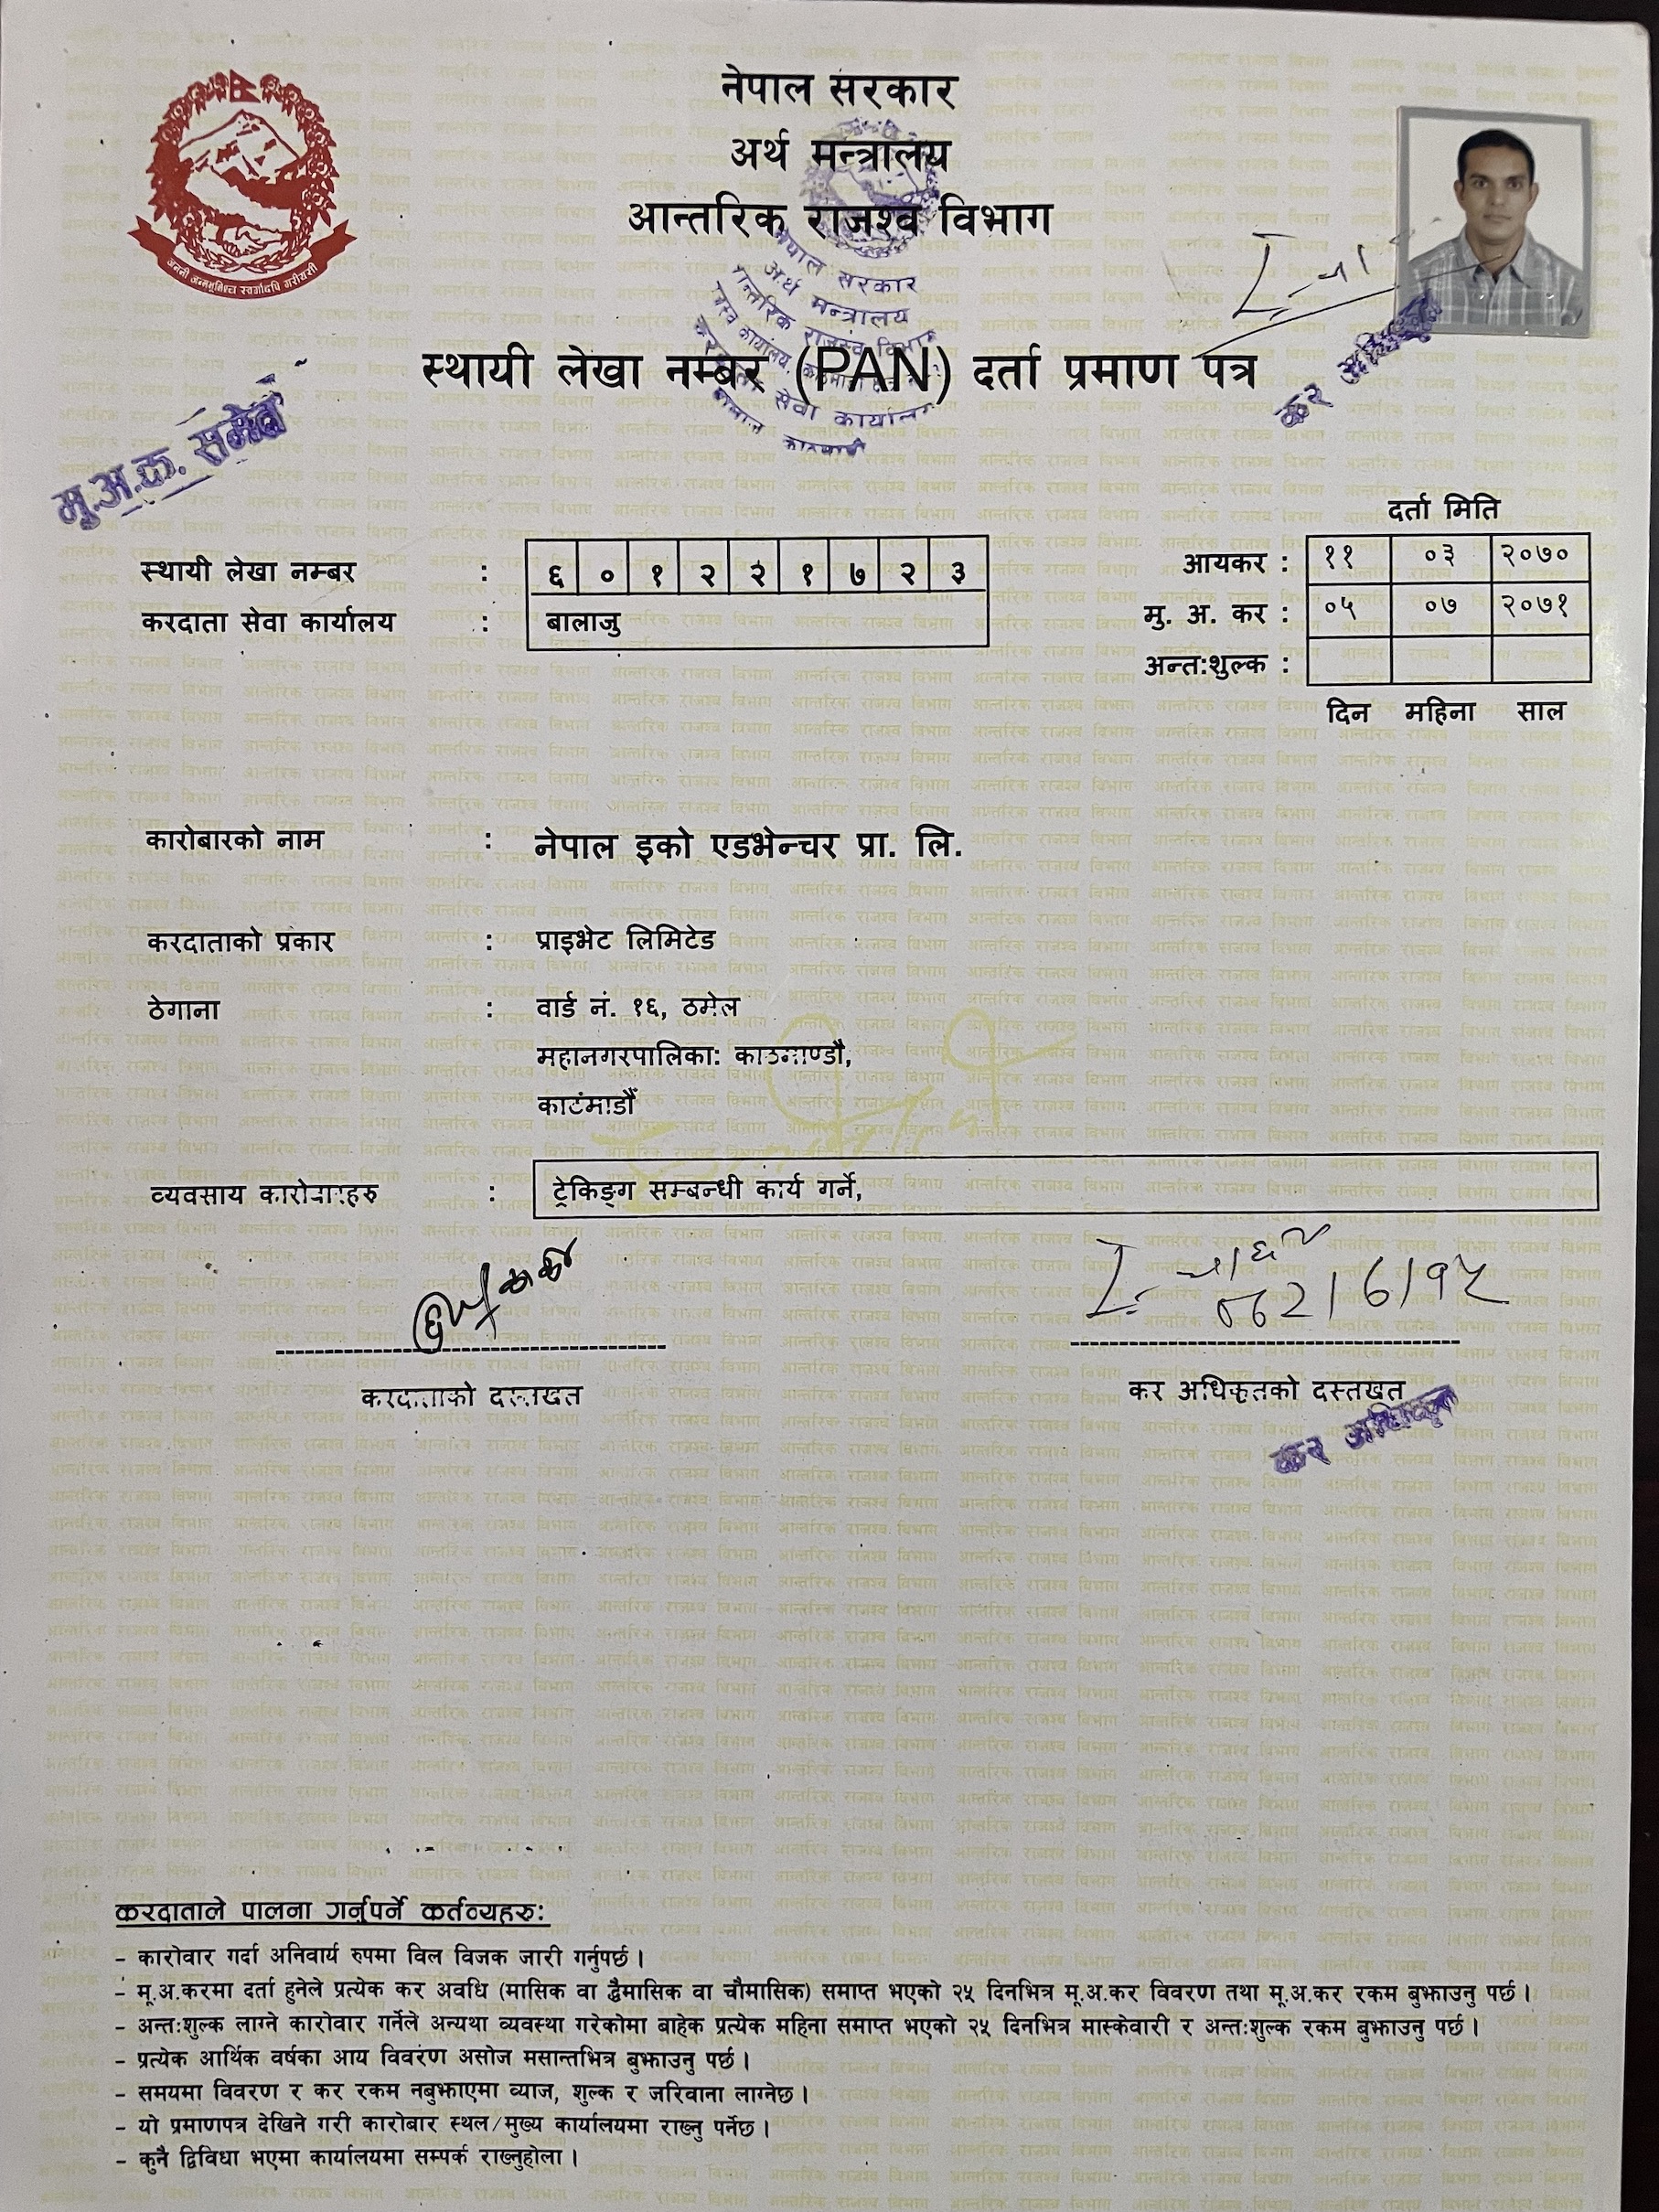 नेपाल सरकार
अर्थ मन्त्रालय
आन्तरिक राजश्व विभाग
जननी जन्मभूमिश्च स्वर्गादपि गरीयसी
नेपाल सरकार
अर्थ मन्त्रालय
आन्तरिक राजश्व विभाग
सेवा कार्यालय
स्थायी लेखा नम्बर (PAN) दर्ता प्रमाण पत्र
कर अधिकृत
मू.अ.क. समेत
दर्ता मिति
स्थायी लेखा नम्बर : ६ ० १ २ २ १ ७ २ ३
आयकर : ११ ०३ २०७०
करदाता सेवा कार्यालय : बालाजु
मु. अ. कर : ०५ ०७ २०७१
अन्त:शुल्क :
दिन महिना साल
कारोबारको नाम : नेपाल इको एडभेन्चर प्रा. लि.
करदाताको प्रकार : प्राइभेट लिमिटेड
ठेगाना : वार्ड नं. १६, ठमेल
महानगरपालिका: काठमाण्डौ,
काठमाडौं
व्यवसाय कारोबारहरु : ट्रेकिङ्ग सम्बन्धी कार्य गर्ने,
करदाताको दस्तखत
कर अधिकृतको दस्तखत
कर अधिकृत
करदाताले पालना गर्नुपर्ने कर्तव्यहरु:
– कारोवार गर्दा अनिवार्य रुपमा विल विजक जारी गर्नुपर्छ ।
– मू.अ.करमा दर्ता हुनेले प्रत्येक कर अवधि (मासिक वा द्वैमासिक वा चौमासिक) समाप्त भएको २५ दिनभित्र मू.अ.कर विवरण तथा मू.अ.कर रकम बुझाउनु पर्छ ।
– अन्त:शुल्क लाग्ने कारोवार गर्नेले अन्यथा व्यवस्था गरेकोमा बाहेक प्रत्येक महिना समाप्त भएको २५ दिनभित्र मास्केवारी र अन्त:शुल्क रकम बुझाउनु पर्छ ।
– प्रत्येक आर्थिक वर्षका आय विवरण असोज मसान्तभित्र बुझाउनु पर्छ ।
– समयमा विवरण र कर रकम नबुझाएमा व्याज, शुल्क र जरिवाना लाग्नेछ ।
– यो प्रमाणपत्र देखिने गरी कारोबार स्थल/मुख्य कार्यालयमा राख्नु पर्नेछ ।
– कुनै द्विविधा भएमा कार्यालयमा सम्पर्क राख्नुहोला ।